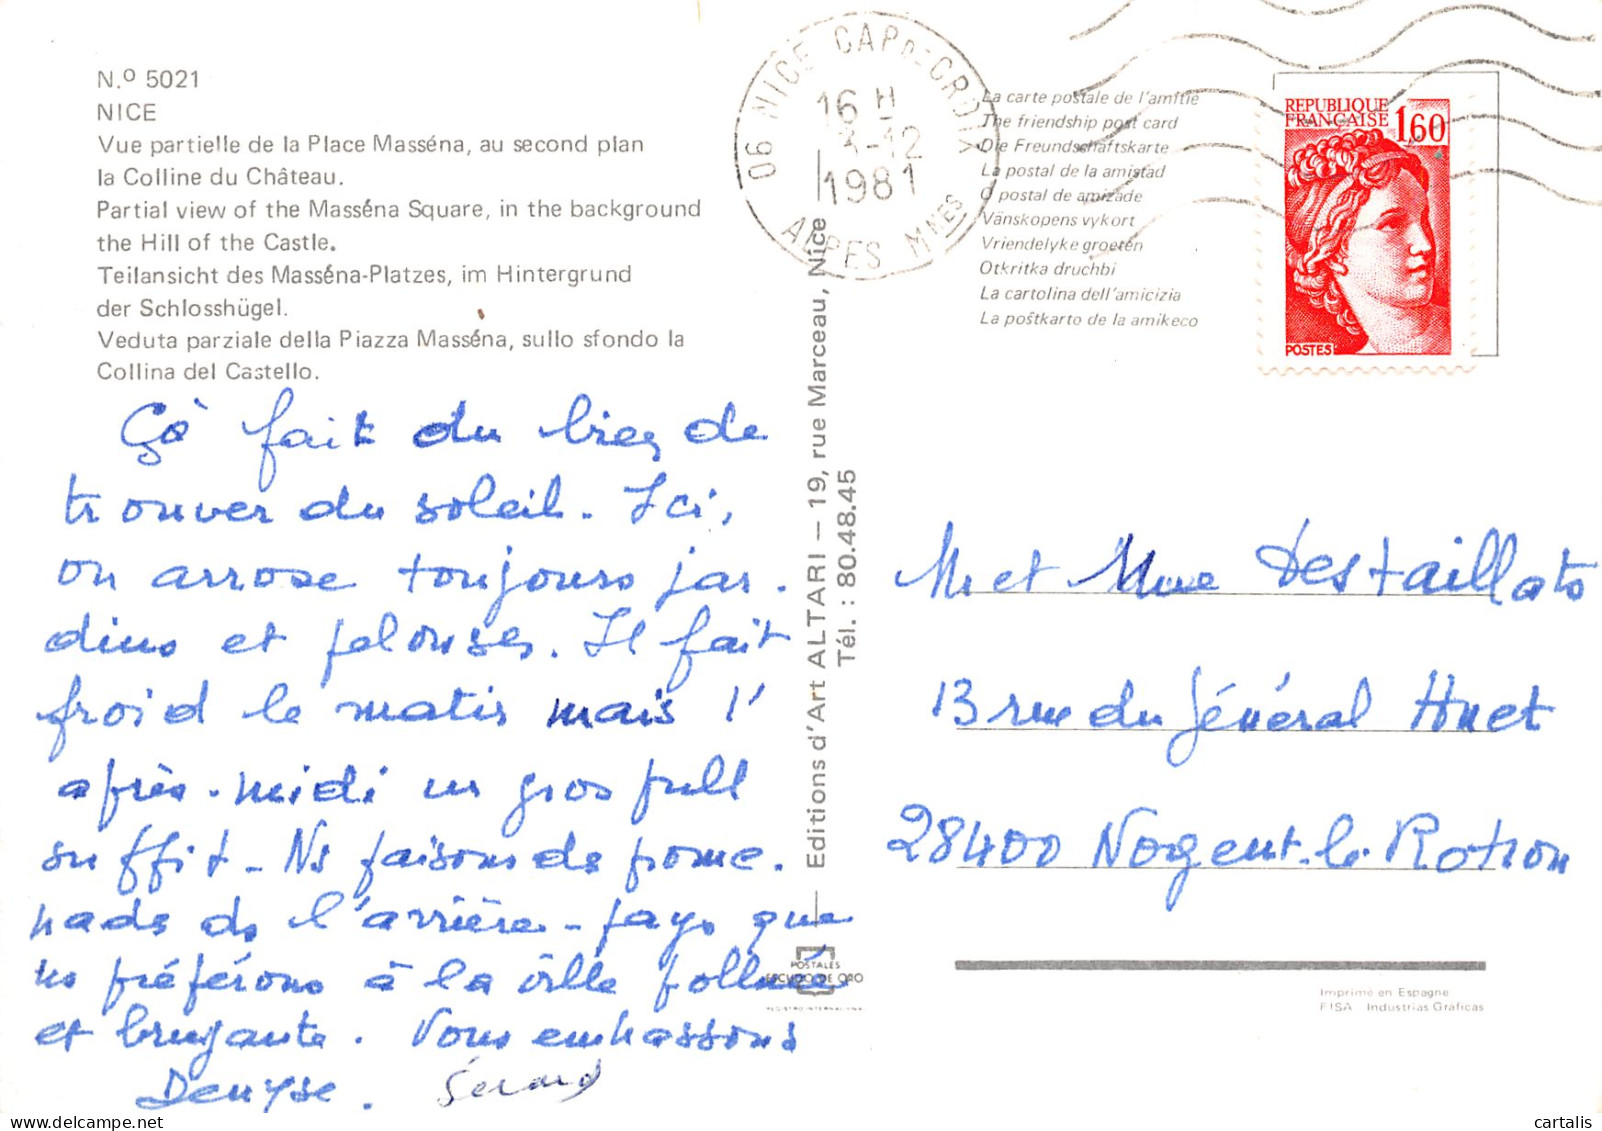 N.º 5021
NICE
Vue partielle de la Place Masséna, au second plan
la Colline du Château.
Partial view of the Masséna Square, in the background
the Hill of the Castle.
Teilansicht des Masséna-Platzes, im Hintergrund
der Schlosshügel.
Veduta parziale della Piazza Masséna, sullo sfondo la
Collina del Castello.
Çà fait du bien de
trouver du soleil. Ici,
on arrose toujours jar-
dins et pelouses. Il fait
froid le matin mais l'
après-midi un gros pull
suffit - Ns faisons de prome-
nades ds l'arrière-pays que
ns préférons à la ville polluée
et bruyante. Vous embrassons
Denyse. Gérard
Editions d'Art ALTARI — 19, rue Marceau, Nice
Tél. : 80.48.45
POSTALES
ESCUDO DE ORO
REGISTRO INTERNACIONAL
06 NICE CAP DE CROIX
16 H
-12
1981
ALPES MMES
La carte postale de l'amitie
The friendship post card
Die Freundschaftskarte
La postal de la amistad
O postal de amizade
Vänskopens vykort
Vriendelyke groeten
Otkritka druchbi
La cartolina dell'amicizia
La poŝtkarto de la amikeco
REPUBLIQUE
FRANÇAISE 1,60
POSTES
Mr et Mme Destaillats
13 rue du Général Huet
28400 Nogent-le-Rotrou
Imprimé en Espagne
FISA Industrias Gráficas
cartalis